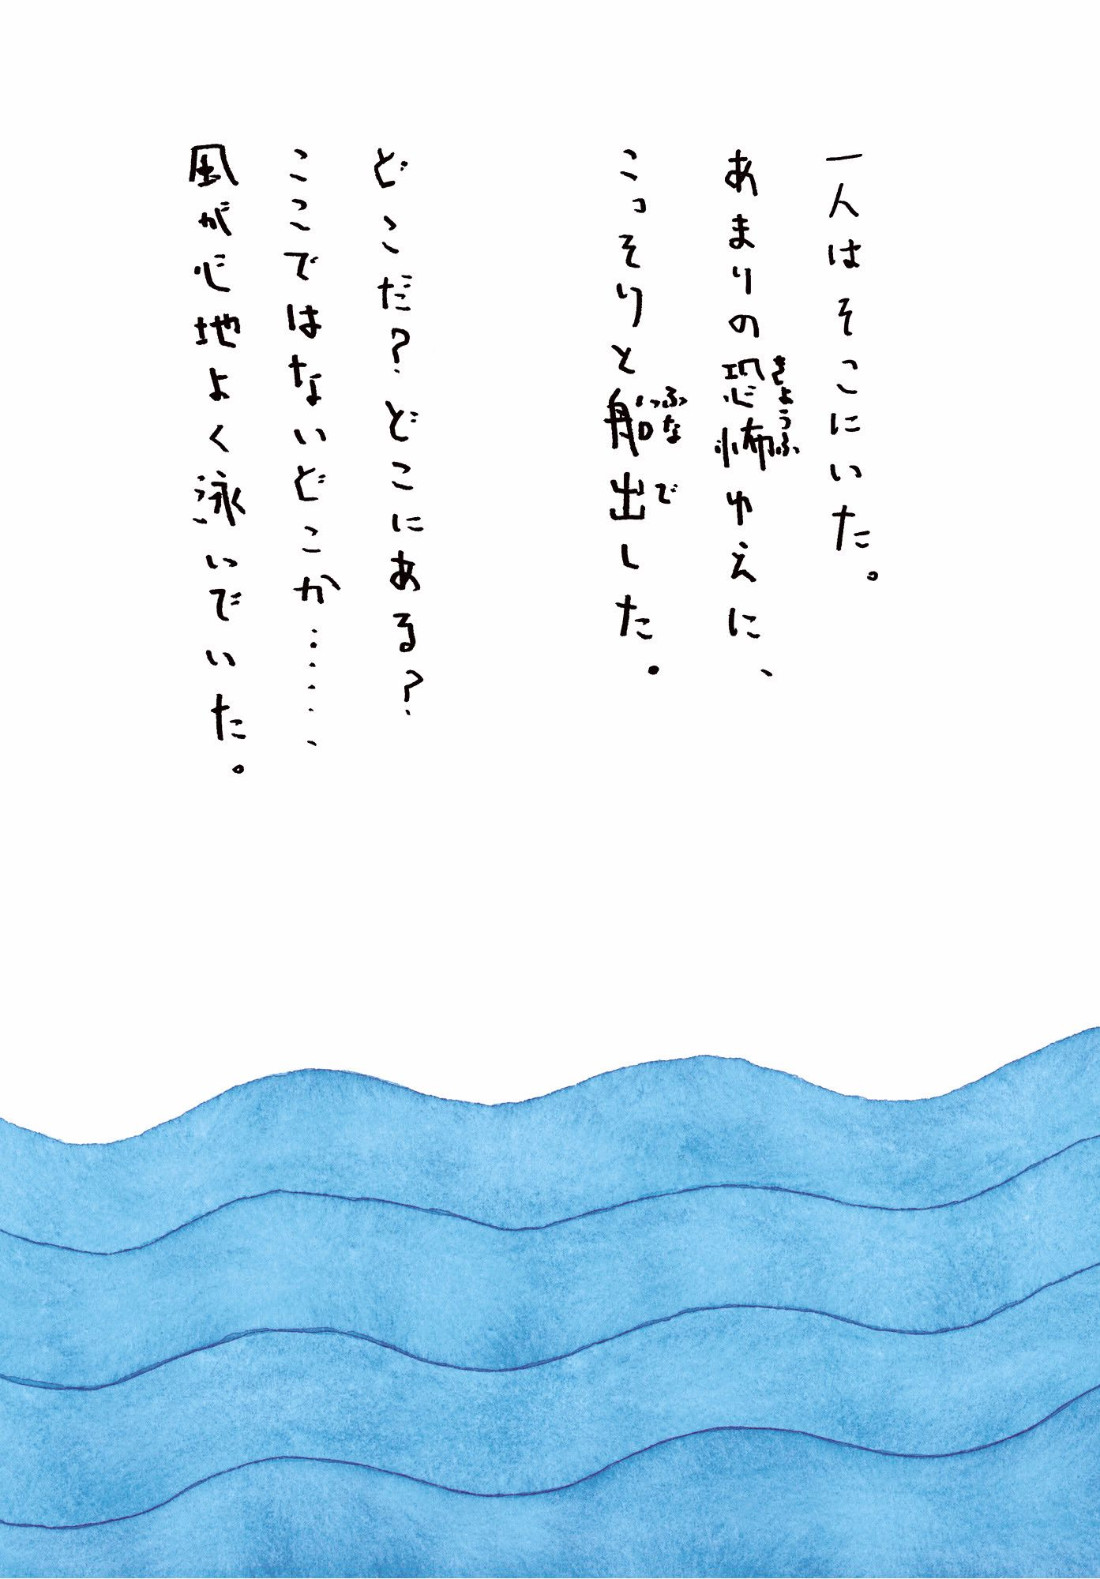 一人はそこにいた。
あまりの恐怖ゆえに、
きょうふ
こっそりと船出した。
ふなで
どこだ？どこにある？
ここではないどこか……、
風が心地よく泳いでいた。